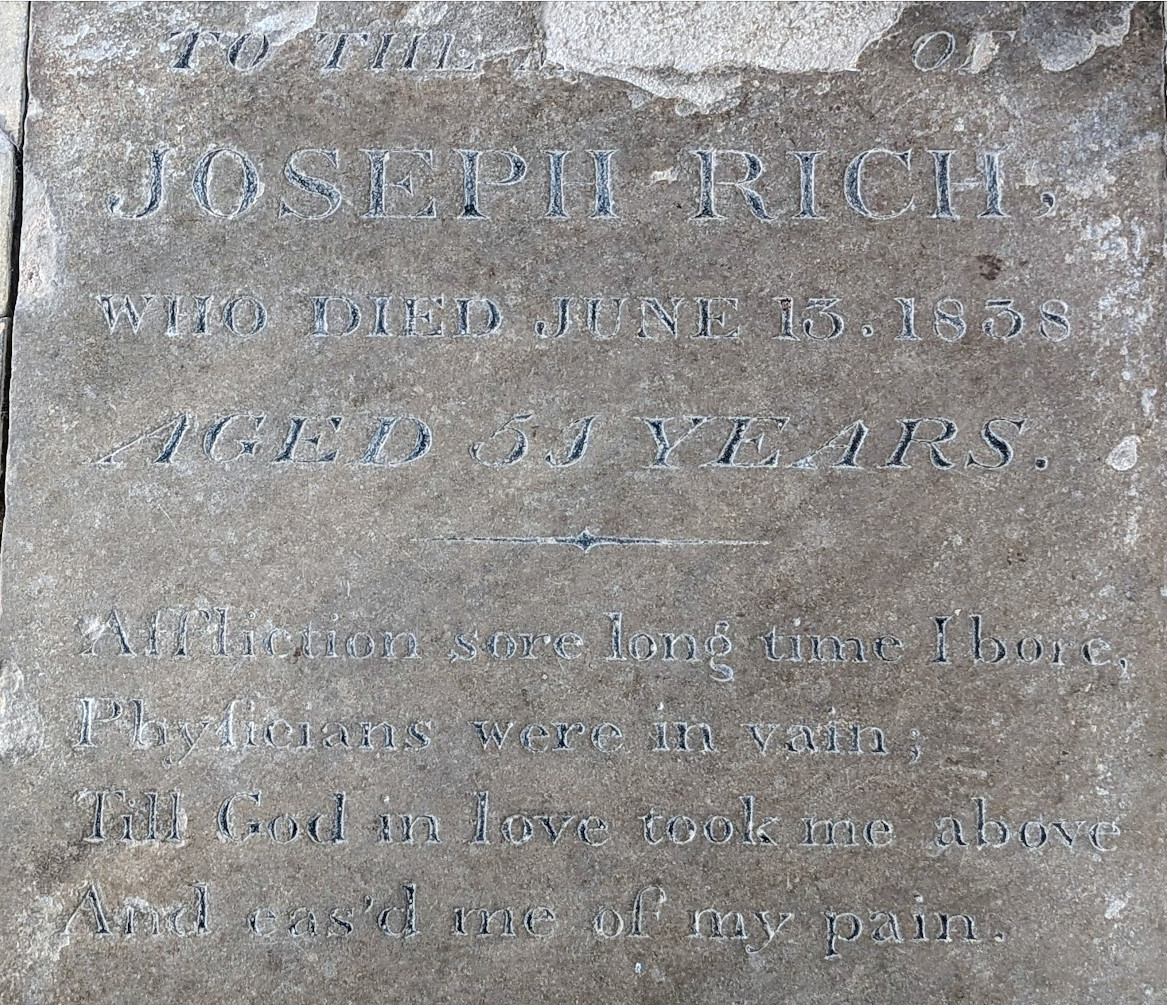 TO THE OF
JOSEPH RICH,
WHO DIED JUNE 13. 1838
AGED 51 YEARS.
Affliction sore long time I bore,
Phyſicians were in vain;
Till God in love took me above
And eas'd me of my pain.